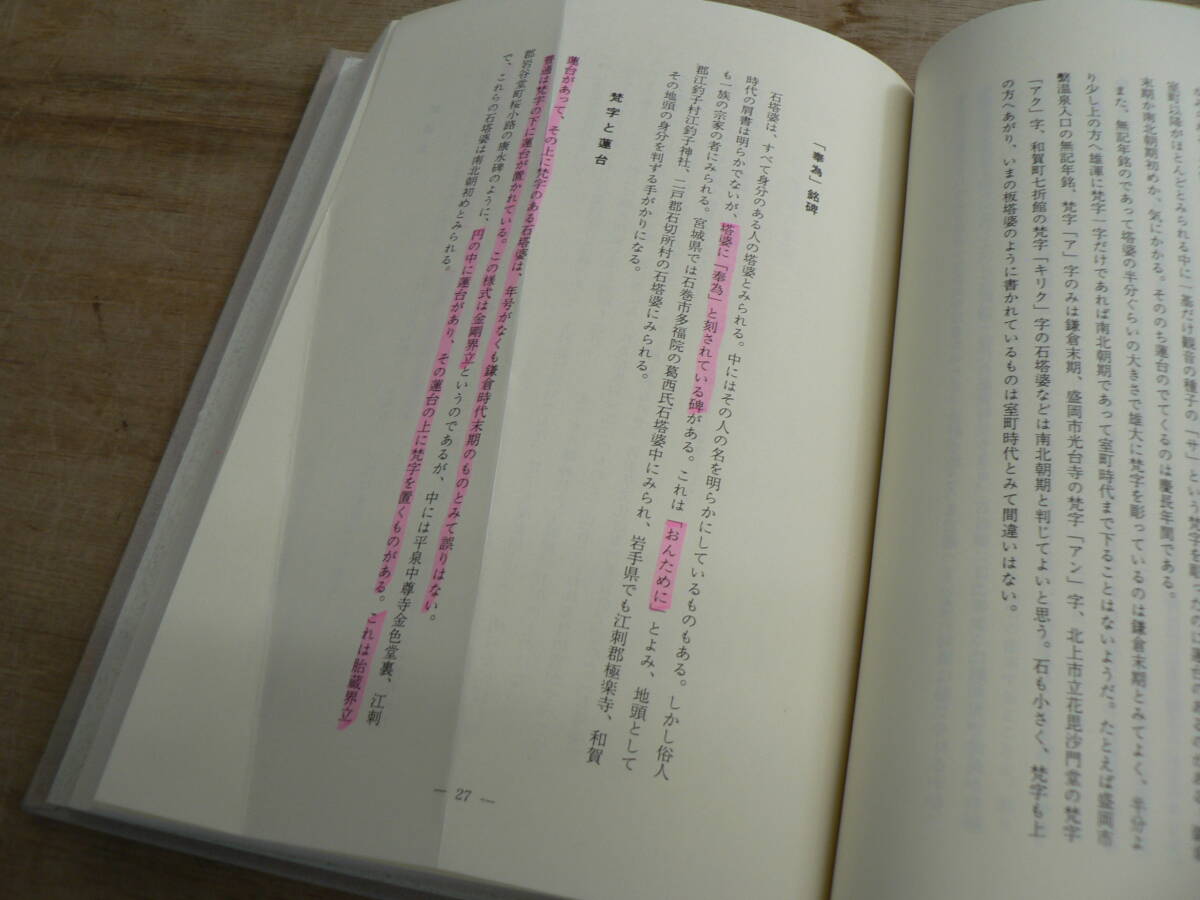 室町以降がほとんどとみられる中に一基だけ観音の種子の「サ」という梵字を彫ったのに蓮台のあるのがある。
末期か南北朝期初めか、気にかかる。そののち蓮台のでてくるのは慶長年間である。
また、無記年銘のであって塔婆の半分ぐらいの大きさで雄大に梵字を彫っているのは鎌倉末期とみてよく、半分よ
り少し上の方へ雄渾に梵字一字だけであれば南北朝期であって室町時代まで下ることはないようだ。たとえば盛岡市
繋温泉入口の無記年銘、梵字「ア」字のみは鎌倉末期、盛岡市光台寺の梵字「アン」字、北上市立花毘沙門堂の梵字
「アク」字、和賀町七折館の梵字「キリク」字の石塔婆などは南北朝期と判じてよいと思う。石も小さく、梵字も上
の方へあがり、いまの板塔婆のように書かれているものは室町時代とみて間違いはない。
「奉為」銘碑
石塔婆は、すべて身分のある人の塔婆とみられる。中にはその人の名を明らかにしているものもある。しかし俗人
時代の肩書は明らかでないが、塔婆に「奉為」と刻されている碑がある。これは「おんために」とよみ、地頭として
も一族の宗家の者にみられる。宮城県では石巻市多福院の葛西氏石塔婆中にみられ、岩手県でも江刺郡極楽寺、和賀
郡江釣子村江釣子神社、二戸郡石切所村の石塔婆にみられる。
その地頭の身分を判ずる手がかりになる。
梵字と蓮台
蓮台があって、その上に梵字のある石塔婆は、年号がなくも鎌倉時代末期のものとみて誤りはない。
普通は梵字の下に蓮台が置かれている。この様式は金剛界立というのであるが、中には平泉中尊寺金色堂裏、江刺
郡岩谷堂町桜小路の康永碑のように、円の中に蓮台があり、その蓮台の上に梵字を置くものがある。これは胎蔵界立
で、これらの石塔婆は南北朝初めとみられる。
— 27 —